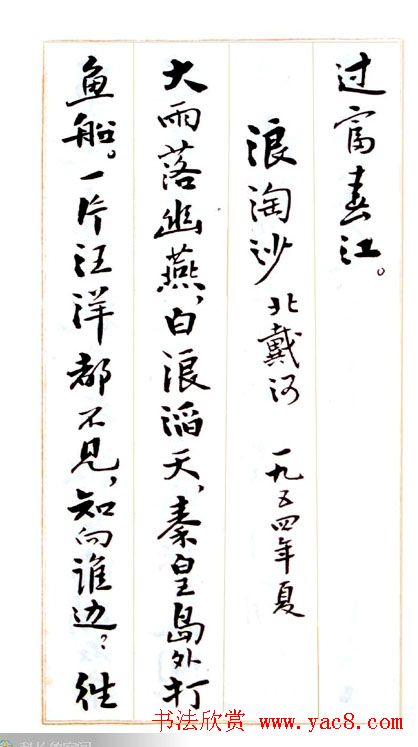 过富春江。
浪淘沙 北戴河 一九五四年夏
大雨落幽燕，白浪滔天，秦皇岛外打
鱼船。一片汪洋都不见，知向谁边？往
书法欣赏 www.yac8.com